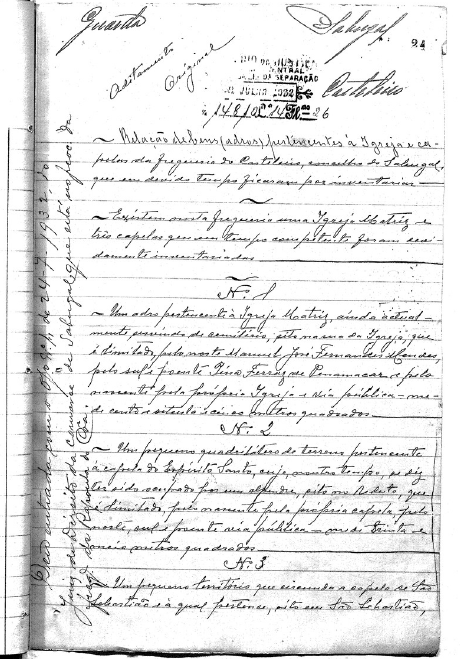 Guarda
Sabugal
24
Aditamento
Original
CENTRAL
DA SEPARAÇÃO
JULHO 1932
Casteleiro
26
~ Relação de bens (adros) pertencentes à Igreja e ca-
pelas da freguesia do Casteleiro, concelho do Sabugal,
que em devido tempo ficaram por inventariar —
~ Existem nesta freguesia uma Igreja Matriz e
três capelas que em tempo competente foram devi-
damente inventariadas
Nº 1
~ Um adro pertencente à Igreja Matriz, ainda actual-
mente servindo de cemitério, sito na rua da Igreja, que
é limitado, pelo norte Manuel José Fernandes Mendes,
pelo sul e poente Ferraz de Penamacor e pelo
nascente pela própria Igreja e via pública — me-
de cento e metros quadrados
Nº 2
~ Um pequeno quadrilátero de terreno pertencente
à capela do Espírito Santo, cujo, noutro tempo, se diz
ter sido ocupado por um alpendre, sito no que
é limitado, pelo nascente pela própria capela, pelo
norte, sul e poente via pública — mede trinta e
metros quadrados
Nº 3
~ Um pequeno território que circunda a capela de São
Sebastião e à qual pertence, sito em São Sebastião,
Deu entrada com o of. de 24-7-1932, do
da comarca do Sabugal que está no proc. da